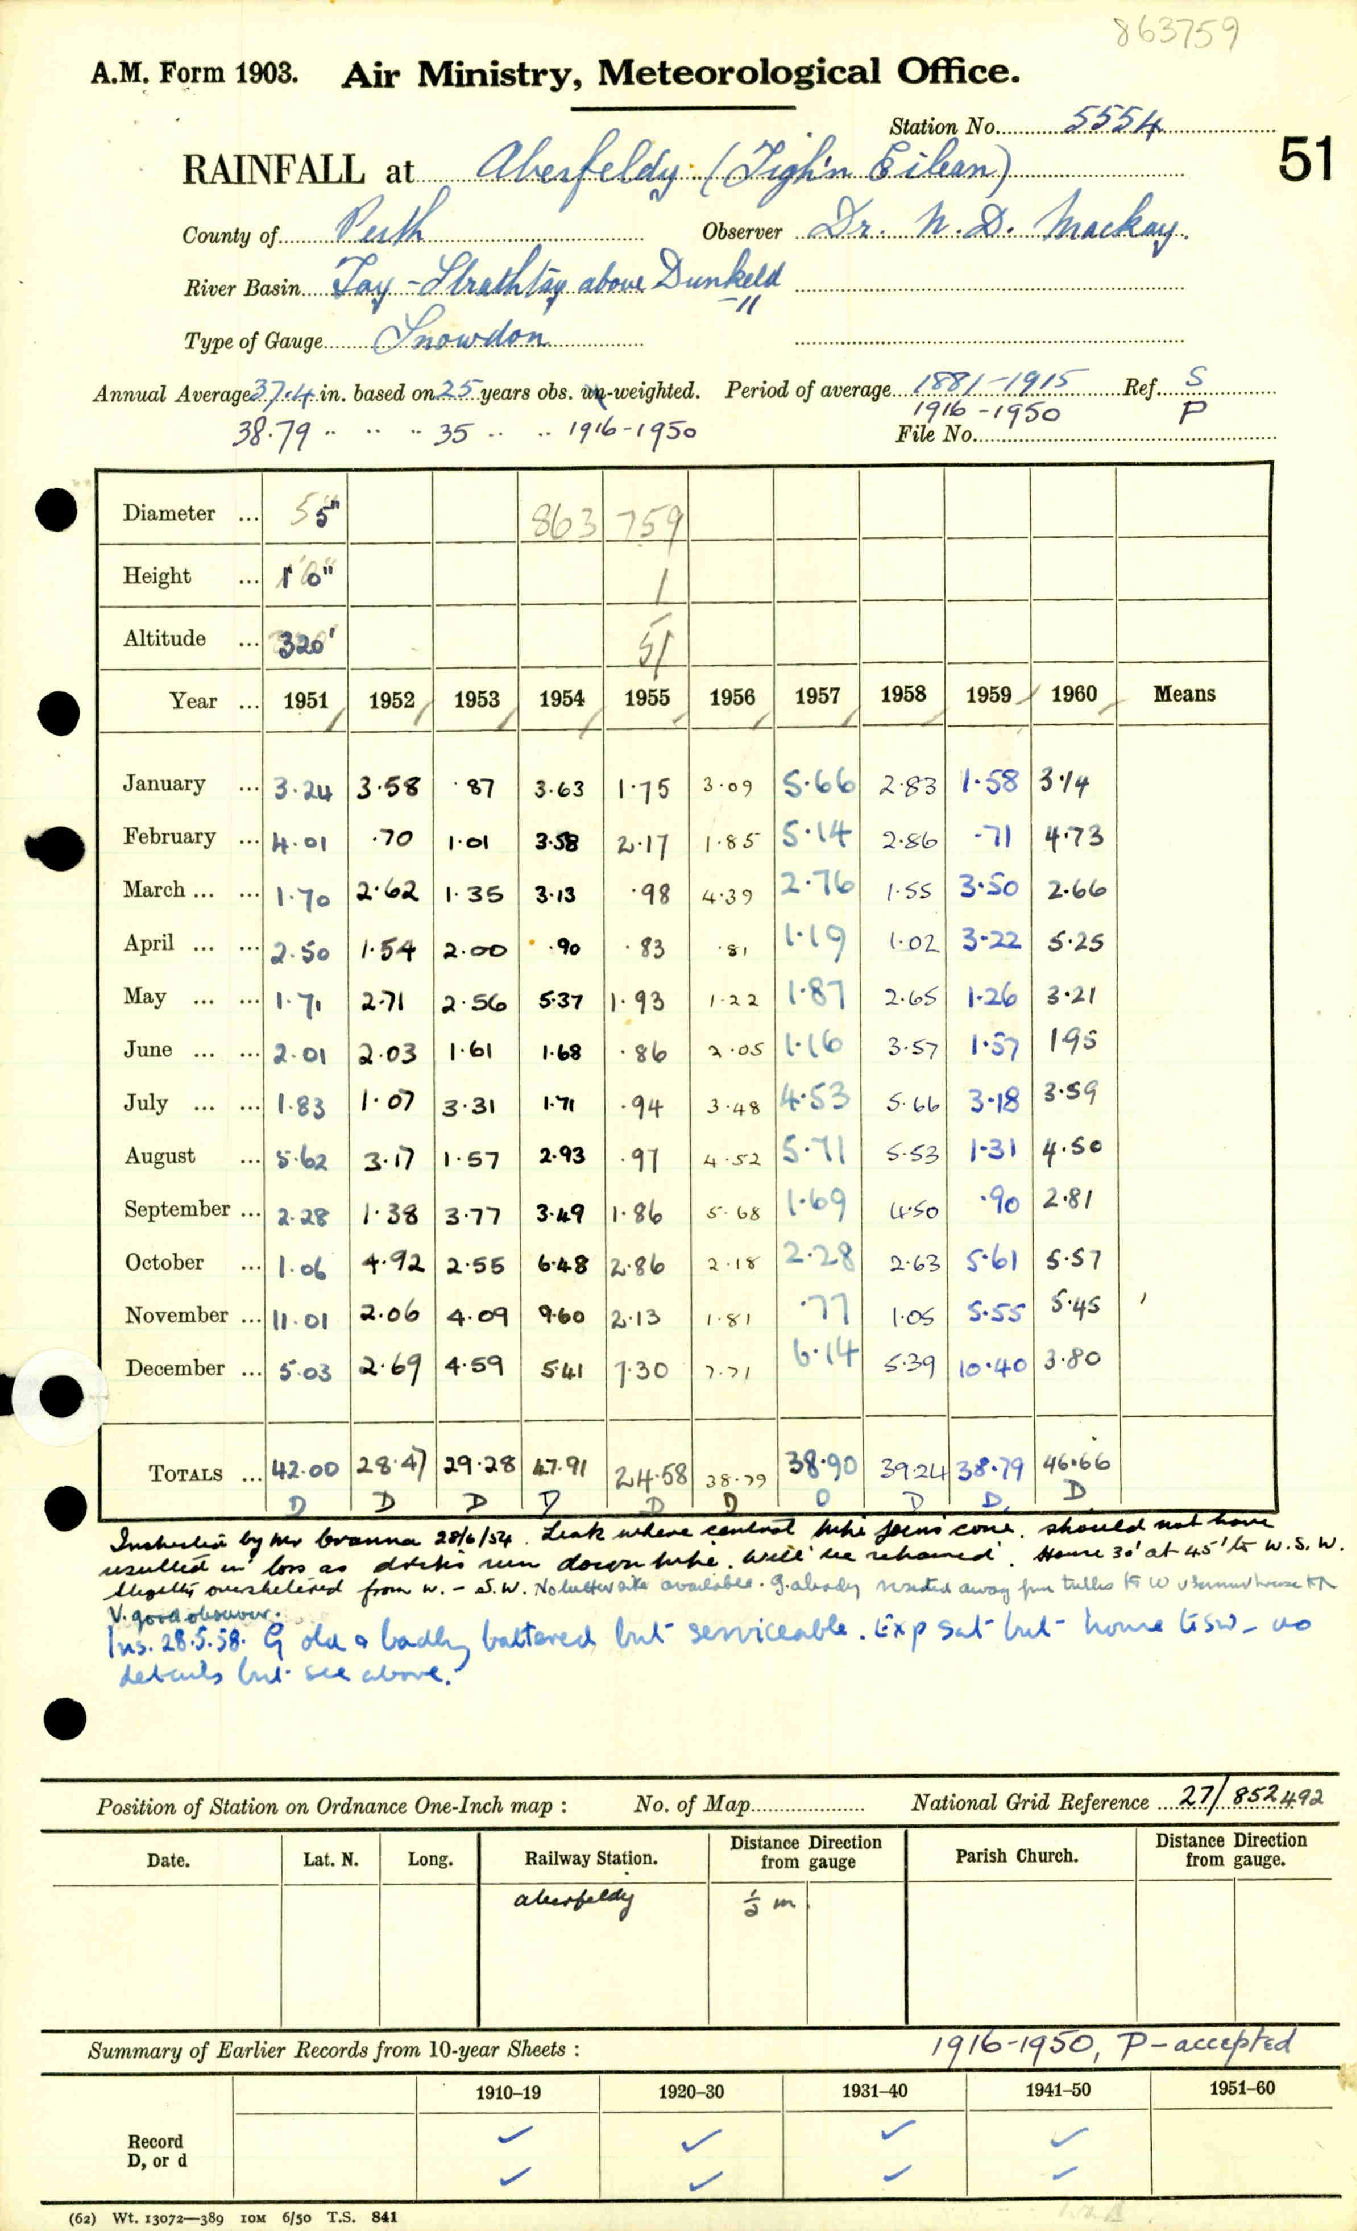 863759
A.M. Form 1903. Air Ministry, Meteorological Office.
Station No. 5554
51
RAINFALL at Aberfeldy (Tigh'n Eilean)
County of Perth Observer Dr. N. D. Mackay.
River Basin Tay - Strathtay above Dunkeld
-"
Type of Gauge Snowdon
Annual Average 37.4 in. based on 25 years obs. un-weighted. Period of average 1881-1915 Ref. S
1916-1950 P
38.79 " " " 35 " " 1916-1950 File No.
Diameter ... 5 5" 863 759
Height ... 1'0" 1
Altitude ... 320' 51
Year ... 1951 1952 1953 1954 1955 1956 1957 1958 1959 1960 Means
January ... 3.24 3.58 .87 3.63 1.75 3.09 5.66 2.83 1.58 3.14
February ... 4.01 .70 1.01 3.58 2.17 1.85 5.14 2.86 .71 4.73
March ... ... 1.70 2.62 1.35 3.13 .98 4.39 2.76 1.55 3.50 2.66
April ... ... 2.50 1.54 2.00 .90 .83 .81 1.19 1.02 3.22 5.25
May ... ... 1.71 2.71 2.56 5.37 1.93 1.22 1.87 2.65 1.26 3.21
June ... ... 2.01 2.03 1.61 1.68 .86 2.05 1.16 3.57 1.57 195
July ... ... 1.83 1.07 3.31 1.71 .94 3.48 4.53 5.66 3.18 3.59
August ... 5.62 3.17 1.57 2.93 .97 4.52 5.71 5.53 1.31 4.50
September ... 2.28 1.38 3.77 3.49 1.86 5.68 1.69 4.50 .90 2.81
October ... 1.06 4.92 2.55 6.48 2.86 2.18 2.28 2.63 5.61 5.57
November ... 11.01 2.06 4.09 9.60 2.13 1.81 .77 1.05 5.55 5.45
December ... 5.03 2.69 4.59 5.41 7.30 7.71 6.14 5.39 10.40 3.80
TOTALS ... 42.00 28.47 29.28 47.91 24.58 38.79 38.90 39.24 38.79 46.66
D D D D D D D D D. D
Inspected by Mr 28/6/54. Leak where central tube joins cone. should not have
resulted in loss as drips run down tube. Will be repaired. House 30' at 45' to W.S.W.
Slightly oversheltered from W. - S.W. No better site available. G. already away from to W
V. good observer.
Ins. 28.5.58. G old & badly battered but serviceable. Exp sat but house to SW - no
details but see above.
Position of Station on Ordnance One-Inch map : No. of Map National Grid Reference 27/852492
Date. Lat. N. Long. Railway Station. Distance Direction from gauge Parish Church. Distance Direction from gauge.
Aberfeldy ½ m.
Summary of Earlier Records from 10-year Sheets : 1916-1950, P - accepted
1910–19 1920–30 1931–40 1941–50 1951–60
Record ✓ ✓ ✓ ✓
D, or d ✓ ✓ ✓ ✓
(62) Wt. 13072—389 10M 6/50 T.S. 841